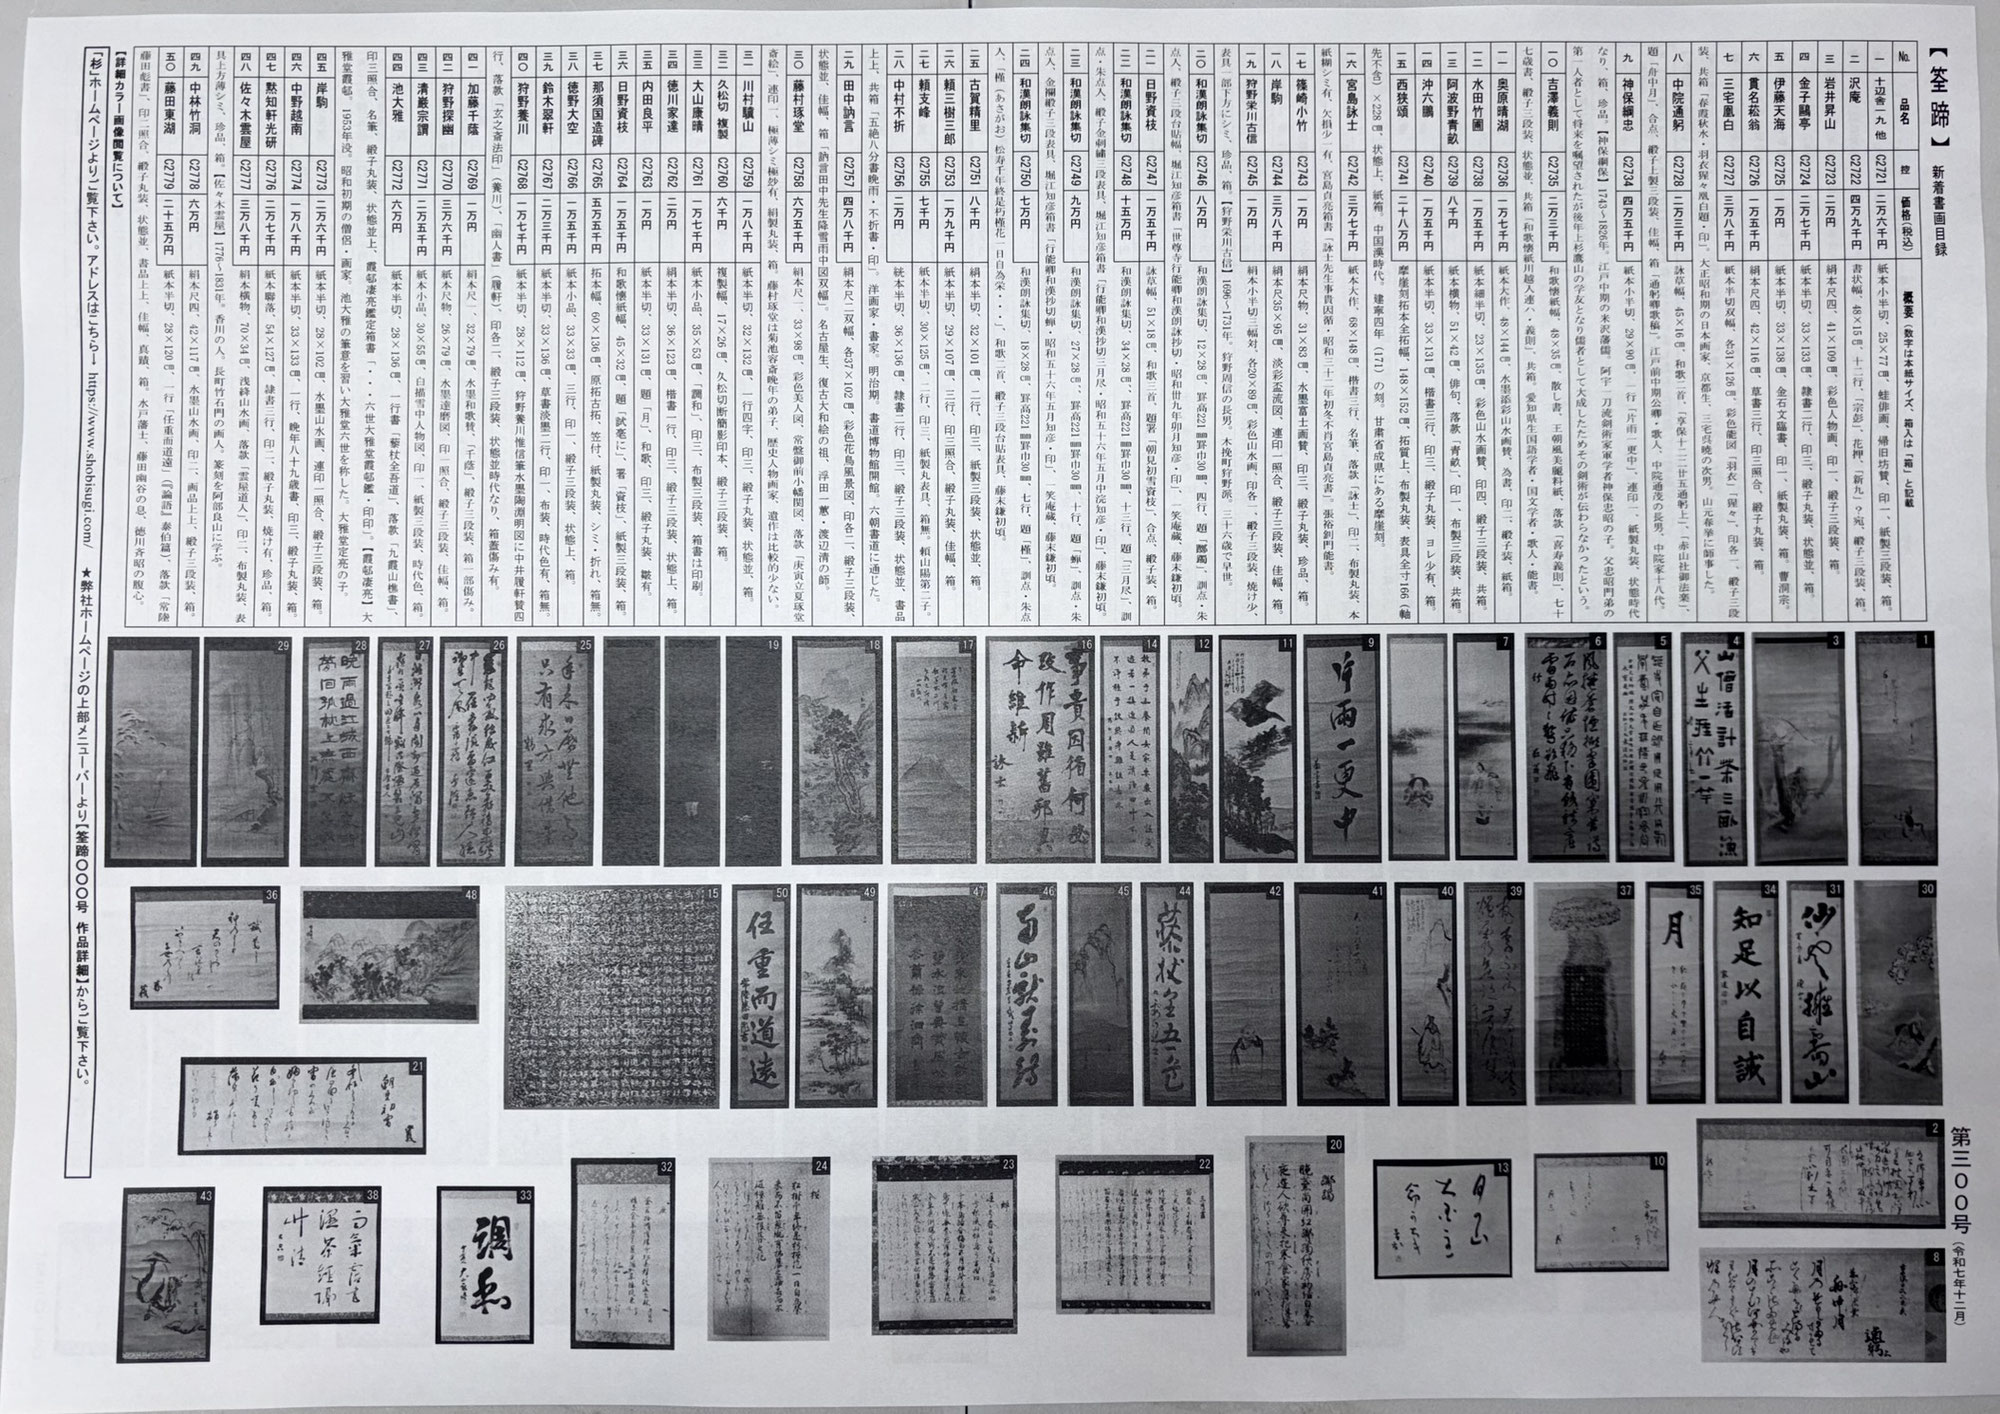 【筌蹄】 新着書画目録
第三〇〇号(令和七年十二月)
No. 品名 控 価格(税込) 概要(数字は本紙サイズ、箱入は「箱」と記載
一 十辺舎一九 他 C2721 二万六千円 紙本小半切、25×77㎝、蛙俳画、帰旧坊賛、印一、紙製三段表装、箱。
二 沢庵 C2722 四万九千円 書状幅、48×15㎝、十二行、「宗彭」、花押、「新九」?宛、緞子三段表装、箱。
三 岩井昇山 C2723 二万円 絹本尺四、41×109㎝、彩色人物画、印一、緞子三段装、箱。
四 金子鷗亭 C2724 二万七千円 紙本半切、33×133㎝、隷書二行、印三、緞子丸装、状態並、箱。
五 伊藤天海 C2725 一万五千円 紙本半切、33×138㎝、金石文臨書、印一、紙製丸装、箱。曹洞宗。
六 貫名松翁 C2726 一万五千円 絹本尺四、42×116㎝、草書三行、印三照合、緞子丸装、箱。
七 三宅凰白 C2727 三万八千円 紙本半切双幅、各31×126㎝、彩色能図「羽衣」「猩々」、印各一、緞子三段
装、共箱「春霞秋水・羽衣猩々凰白題・印」。大正昭和期の日本画家、京都生、三宅呉暁の次男。山元春挙に師事した。
八 中院通躬 C2728 二万三千円 詠草幅、45×16㎝、和歌二首、「享保十二二廿五通躬上」、「赤山社御法楽」、
題「舟中月」、合点、緞子上製三段装、佳幅、箱「通躬卿歌稿」。江戸前中期公卿・歌人、中院通茂の長男、中院家十八代。
九 神保綱忠 C2734 四万五千円 紙本小半切、29×90㎝、一行「片雨一更中」、連印一、紙製丸装、状態時代
なり、箱、珍品。【神保綱保】1743〜1826年。江戸中期の米沢藩儒、阿宇一刀流剣術家軍学者神保忠昭の子。父忠昭門弟の
第一人者として将来を嘱望されたが後年上杉鷹山の学友となり儒者として大成したためその剣術が伝わらなかったという。
一〇 吉澤義則 C2735 二万三千円 和歌懐紙幅、48×35㎝、散し書、王朝風美麗料紙、落款「喜寿義則」、七十
七歳書、緞子三段装、状態並、共箱「和歌懐紙川越人連ハ・義則」、共箱。愛知県生国語学者・国文学者・歌人・能書。
一一 奥原晴湖 C2736 一万七千円 紙本大作、48×144㎝、水墨添彩山水画賛、為書、印二、緞子装、紙箱。
一二 水田竹圃 C2738 一万五千円 紙本細半切、23×135㎝、彩色山水画賛、印四、緞子三段装、共箱。
一三 阿波野青畝 C2739 八千円 紙本横物、51×42㎝、俳句、落款「青畝」、印一、布製三段装、共箱。
一四 沖六鵬 C2740 一万五千円 紙本半切、33×131㎝、楷書三行、印三、緞子丸装、ヨレ少有、箱。
一五 西狭頌 C2741 二十八万円 摩崖刻拓本全拓幅、148×152㎝、拓質上、布製丸装、表具全寸166(軸
先不含)×226㎝、状態上、紙箱。中国漢時代。建寧四年(171)の刻。甘粛省成県にある摩崖刻。
一六 宮島詠士 C2742 三万七千円 紙本大作、68×148㎝、楷書三行、名筆、落款「詠士」、印二、布製丸装、本
紙糊シミ有、欠損少一有、宮島貞亮箱書「詠士先生事貴因循・昭和三十二年初冬不肖宮島貞亮書」。張裕釗門能書。
一七 篠崎小竹 C2743 一万円 絹本尺物、31×83㎝、水墨富士画賛、印三、緞子丸装、珍品、箱。
一八 岸駒 C2744 三万八千円 絹本尺35×95㎝、淡彩盃流図、連印一照合、緞子三段装、佳幅、箱。
一九 狩野栄川古信 C2745 一万円 紙本小半切三幅対、各20×89㎝、彩色山水画、印各一、緞子三段装、焼け少、
表具一部下方にシミ、珍品、箱。【狩野栄川古信】1696〜1731年。狩野周信の長男。木挽町狩野派。三十六歳で早世。
二〇 和漢朗詠集切 C2746 八万円 和漢朗詠集切、27×28㎝、罫高221㎜罫巾30㎜、四行、題「躑躅」、訓点・朱
点入、緞子三段台貼幅、堀江知彦箱書「世尊寺行能卿和漢朗詠抄切・昭和丗九年卯月知彦・印」、一笑庵蔵、藤末鎌初頃。
二一 日野資枝 C2747 一万五千円 詠草幅、51×18㎝、和歌三首、題署「朝見初雪資枝」、合点、緞子装、箱。
二二 和漢朗詠集切 C2748 十五万円 和漢朗詠集切、34×28㎝、罫高221㎜罫巾30㎜、十三行、題「三月尽」、訓
点・朱点入、緞子金刺繡三段表具、堀江知彦箱書「行能卿和漢抄切三月尽・昭和五十六年五月中浣知彦・印」、藤末鎌初頃。
二三 和漢朗詠集切 C2749 九万円 和漢朗詠集切、27×28㎝、罫高221㎜罫巾30㎜、十行、題「蝉」、訓点・朱
点入、金襴緞子三段表具、堀江知彦箱書「行能卿和漢抄切蝉・昭和五十六年五月知彦・印」、一笑庵蔵、藤末鎌初頃。
二四 和漢朗詠集切 C2750 七万円 和漢朗詠集切、18×28㎝、罫高221㎜罫巾30㎜、七行、題「槿」、訓点・朱点
入、「槿(あさがお)松寿千年終是朽槿花一日自為栄・・・」、和歌一首、緞子三段台貼表具、藤末鎌初頃。
二五 古賀精里 C2751 八千円 紙本半切、32×101㎝、二行、印三、紙製三段装、状態並、箱。
二六 頼三樹三郎 C2753 一万九千円 紙本半切、29×107㎝、三行、印三照合、緞子丸装、佳幅、箱。
二七 頼支峰 C2755 七千円 紙本半切、30×125㎝、二行、印三、紙製丸表具、箱無。頼山陽第二子。
二八 中村不折 C2756 二万円 絖本半切、36×136㎝、隷書二行、印三、緞子三段装、状態並、書品
上上、共箱「五絶八分書晩雨・不折書・印」。洋画家・書家。明治期。書道博物館開館。六朝書道に通じた。
二九 田中訥言 C2757 四万八千円 絹本尺二双幅、各37×102㎝、彩色花鳥風景図、印各二、緞子三段装、
状態並、佳幅、箱「訥言田中先生降雪雨中図双幅」。名古屋生、復古大和絵の祖、浮田一蕙・渡辺清の師。
三〇 藤村琢堂 C2758 六万五千円 絹本尺一、33×98㎝、彩色美人図、常盤御前小幡関図、落款「庚寅立夏琢堂
斎絵」、連印一、極薄シミ極紗有、絹製丸装、箱。藤村琢堂は菊池容斎晩年の弟子、歴史人物画家、遺作は比較的少ない。
三一 川村驥山 C2759 一万八千円 紙本半切、32×132㎝、一行四字、印三、緞子丸装、状態並、箱。
三二 久松切 複製 C2760 六千円 複製幅、17×26㎝、久松切断簡影印本、緞子三段装、箱。
三三 大山康晴 C2761 一万七千円 紙本小品、35×53㎝、「調和」、印三、布製三段装、箱書は印刷。
三四 徳川家達 C2762 二万五千円 絹本半切、36×123㎝、楷書一行、印三、緞子三段装、状態上、箱。
三五 内田良平 C2763 一万円 紙本半切、33×131㎝、題「月」、和歌、印三、緞子丸装、皺有。
三六 日野資枝 C2764 一万五千円 和歌懐紙幅、45×32㎝、題「試毫に」、署「資枝」、紙製三段装、箱。
三七 那須国造碑 C2765 五万五千円 拓本幅、60×136㎝、原拓古拓、笠付、紙製丸装、シミ・折れ、箱無。
三八 徳野大空 C2766 一万五千円 紙本小品、33×33㎝、三行、印一、緞子三段装、状態上、箱。
三九 鈴木翠軒 C2767 二万三千円 紙本半切、33×136㎝、草書淡墨二行、印一、布装、時代色有、箱無。
四〇 狩野養川 C2768 一万七千円 紙本半切、28×112㎝、狩野養川惟信筆水墨陶淵明図に中井履軒賛四
行、落款「玄之斎法印」(養川)、「幽人書」(履軒)、印各二、緞子三段装、状態並時代なり、箱蓋傷み有。
四一 加藤千蔭 C2769 一万円 紙本半切、32×79㎝、水墨和歌賛、「千蔭」、緞子三段装、箱一部傷み。
四二 狩野探幽 C2770 三万六千円 紙本尺物、26×79㎝、水墨達磨図、印一照合、緞子三段装、佳幅、箱。
四三 清巌宗謂 C2771 二万五千円 紙本小品、30×55㎝、白描雪中人物図、印一、紙製三段装、時代色、箱。
四四 池大雅 C2772 六万円 紙本半切、28×136㎝、一行書「藜杖全吾道」、落款「九霞山樵書」、
印三照合、名筆、緞子丸装、状態並上、霞邨凄亮鑑定箱書「・・・六世大雅堂霞邨鑑・印印」。【霞邨凄亮】大
雅堂霞邨。1953年没。昭和初期の僧侶・画家。池大雅の筆意を習い大雅堂六世を称した。大雅堂定亮の子。
四五 岸駒 C2773 二万六千円 紙本半切、28×102㎝、水墨山水画、連印一照合、緞子三段装、箱。
四六 中野越南 C2774 一万八千円 紙本半切、33×133㎝、一行、晩年八十九歳書、印三、緞子丸装、箱。
四七 黙知軒光研 C2776 二万七千円 紙本聯落、54×127㎝、隷書三行、印二、緞子丸装、焼け有、珍品、箱。
四八 佐々木雲屋 C2777 三万八千円 絹本横物、70×34㎝、浅絳山水画、落款「雲屋道人」、印二、布製丸装、表
具上方薄シミ、珍品、箱。【佐々木雲屋】1776〜1831年。香川の人。長町竹石門の画人。篆刻を阿部良山に学ぶ。
四九 中林竹洞 C2778 六万円 絹本尺四、42×117㎝、水墨山水画、印二、画品上上、緞子三段装、箱。
五〇 藤田東湖 C2779 二十五万円 紙本半切、28×120㎝、一行「任重而道遠」(『論語』泰伯篇)、落款「常陸
藤田彪書」、印二照合、緞子丸装、状態並、書品上上、佳幅、真蹟、箱。水戸藩士、藤田幽谷の息、徳川斉昭の腹心。
【詳細カラー画像閲覧について】
「杉」ホームページよりご覧下さい。アドレスはこちら→ https://www.shobisugi.com/ ★弊社ホームページの上部メニューバーより【筌蹄〇〇〇号 作品詳細】からご覧下さい。
1
3
4
山僧活計茶三畝漁
父生涯竹一竿
5
6
7
9
片雨一更中
11
12
14
16
事貴因循何必
改作周雖舊邦其
命維新
詠士
17
18
19
25
26
27
28
29
30
31
34
知足以自誡
35
月
37
39
40
41
42
44
45
46
47
49
50
任重而道遠
15
48
36
2
8
舟中月
10
13
20
躑躅
22
23
24
21
32
33
調和
38
43